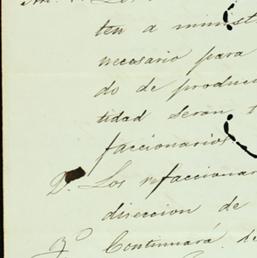 Los
ten a minist
necesario para
do de produc
tidad seran
faccionarios
Los refaccionar
direccion de
Continuará de